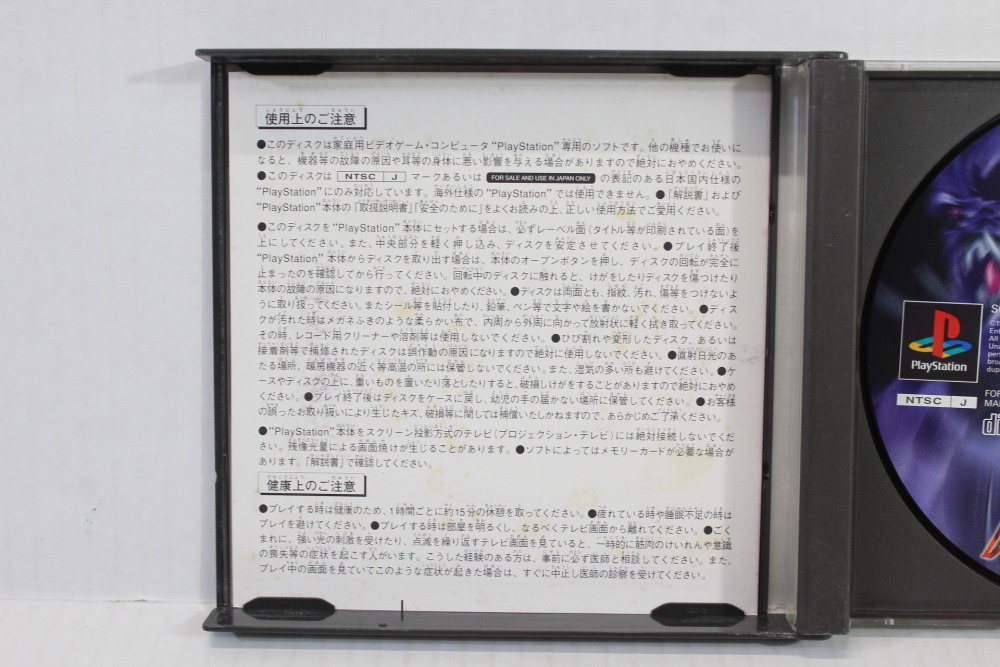 使用上のご注意
●このディスクは家庭用ビデオゲーム・コンピュータ“PlayStation”専用のソフトです。他の機種でお使いに
なると、機器等の故障の原因や耳等の身体に悪い影響を与える場合がありますので絶対におやめください。
●このディスクは NTSC J マークあるいは FOR SALE AND USE IN JAPAN ONLY の表記のある日本国内仕様の
“PlayStation”にのみ対応しています。海外仕様の“PlayStation”では使用できません。●「解説書」および
“PlayStation”本体の「取扱説明書」「安全のために」をよくお読みの上、正しい使用方法でご愛用ください。
●このディスクを“PlayStation”本体にセットする場合は、必ずレーベル面(タイトル等が印刷されている面)を
上にしてください。また、中央部分を軽く押し込み、ディスクを安定させてください。●プレイ終了後
“PlayStation”本体からディスクを取り出す場合は、本体のオープンボタンを押し、ディスクの回転が完全に
止まったのを確認してから行ってください。回転中のディスクに触れると、けがをしたりディスクを傷つけたり
本体の故障の原因になりますので、絶対におやめください。●ディスクは両面とも、指紋、汚れ、傷等をつけないよ
うに取り扱ってください。またシール等を貼付したり、鉛筆、ペン等で文字や絵を書かないでください。●ディス
クが汚れた時はメガネふきのような柔らかい布で、内周から外周に向かって放射状に軽く拭き取ってください。
その時、レコード用クリーナーや溶剤等は使用しないでください。●ひび割れや変形したディスク、あるいは
接着剤等で補修されたディスクは誤作動の原因になりますので絶対に使用しないでください。●直射日光のあ
たる場所、暖房機器の近く等高温の所には保管しないでください。また、湿気の多い所も避けてください。●ケ
ースやディスクの上に、重いものを置いたり落としたりすると、破損しけがをすることがありますので絶対におやめ
ください。●プレイ終了後はディスクをケースに戻し、幼児の手の届かない場所に保管してください。●お客様
の誤ったお取り扱いにより生じたキズ、破損等に関しては補償いたしかねますので、あらかじめご了承ください。
●“PlayStation”本体をスクリーン投影方式のテレビ(プロジェクション・テレビ)には絶対接続しないでくだ
さい。残像光量による画面焼けが生じることがあります。●ソフトによってはメモリーカードが必要な場合が
あります。「解説書」で確認してください。
健康上のご注意
●プレイする時は健康のため、1時間ごとに約15分の休憩を取ってください。●疲れている時や睡眠不足の時は
プレイを避けてください。●プレイする時は部屋を明るくし、なるべくテレビ画面から離れてください。●ごく
まれに、強い光の刺激を受けたり、点滅を繰り返すテレビ画面を見ていると、一時的に筋肉のけいれんや意識
の喪失等の症状を起こす人がいます。こうした経験のある方は、事前に必ず医師と相談してください。また、
プレイ中の画面を見ていてこのような症状が起きた場合は、すぐに中止し医師の診察を受けてください。
PlayStation
NTSC J